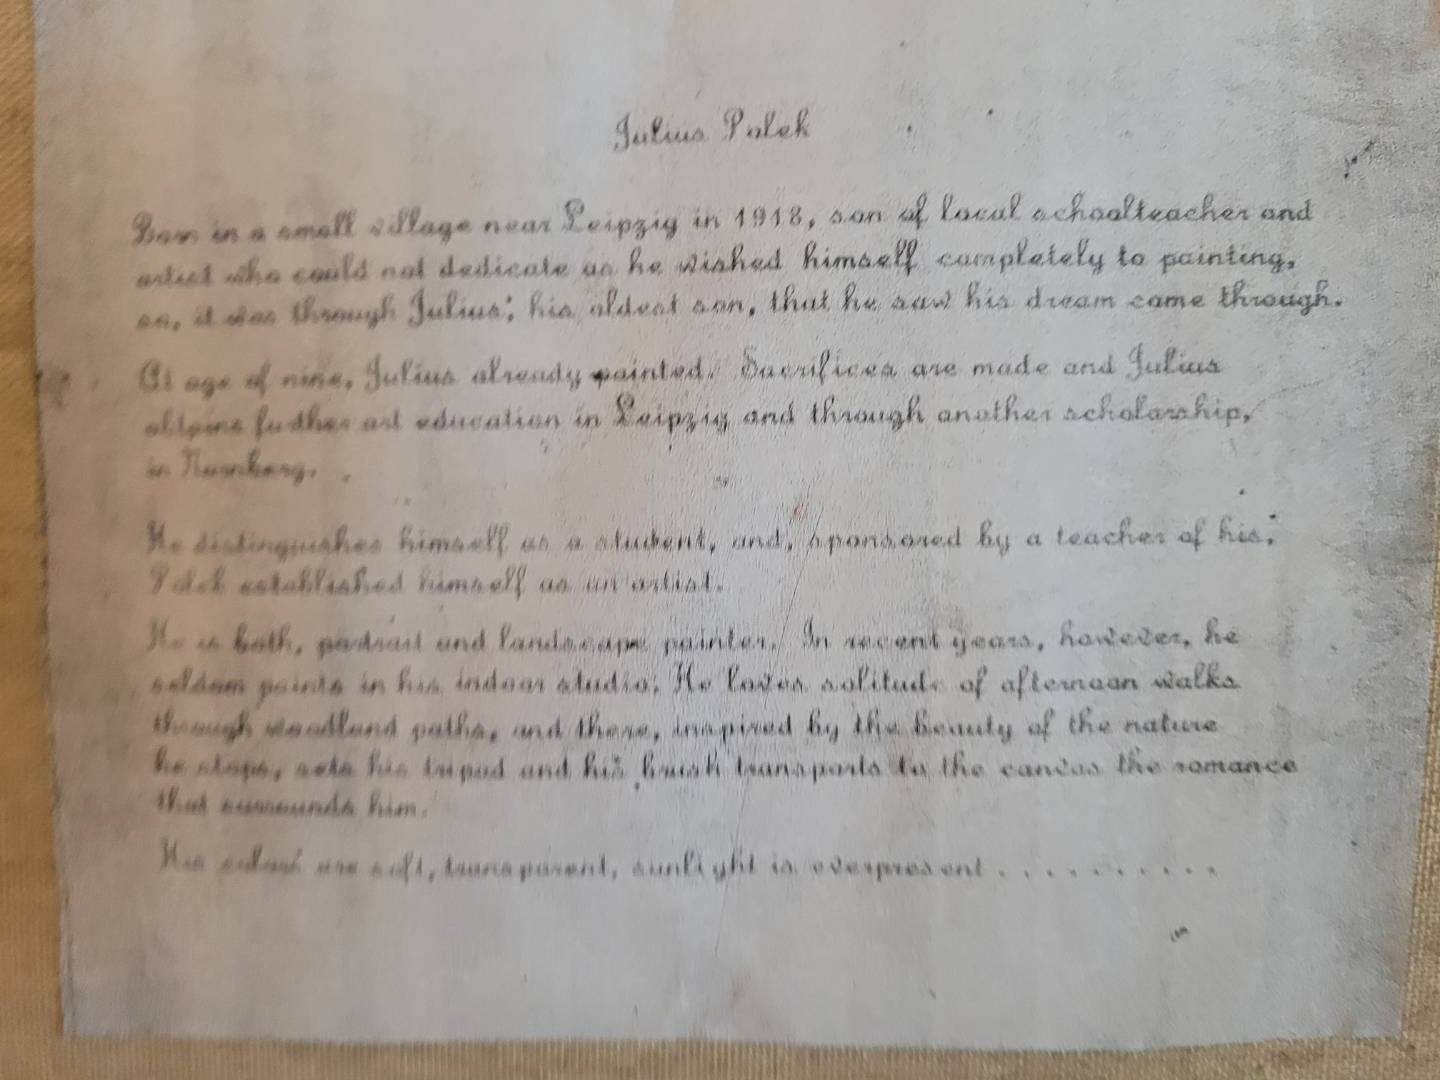 Julius Polek
Born in a small village near Leipzig in 1918, son of local schoolteacher and
artist who could not dedicate as he wished himself completely to painting,
so, it was through Julius; his oldest son, that he saw his dream come through.
At age of nine, Julius already painted. Sacrifices are made and Julius
obtains further art education in Leipzig and through another scholarship,
in Nurnberg.
He distinguishes himself as a student, and, sponsored by a teacher of his;
Polek established himself as an artist.
He is both, portrait and landscape painter. In recent years, however, he
seldom paints in his indoor studio. He loves solitude of afternoon walks
through woodland paths, and there, inspired by the beauty of the nature
he stops, sets his tripod and his brush transports to the canvas the romance
that surrounds him.
His colors are soft, transparent, sunlight is everpresent . . . . . . . . . .